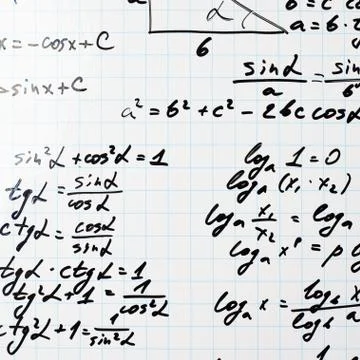 α
b = c c
a = b · 2
x = -cosx + C
b
sinx + C
sinα / a = sin / b
a² = b² + c² - 2bc cosα
sin²α + cos²α = 1
tgα = sinα / cosα
ctgα = cosα / sinα
tgα · ctgα = 1
tg²α + 1 = 1 / cos²α
ctg²α + 1 = 1 / sin²α
logₐ 1 = 0
logₐ (x₁ · x₂)
logₐ x₁ / x₂ = logₐ
logₐ xᵖ = p
logₐ x = log_b x / log_b a